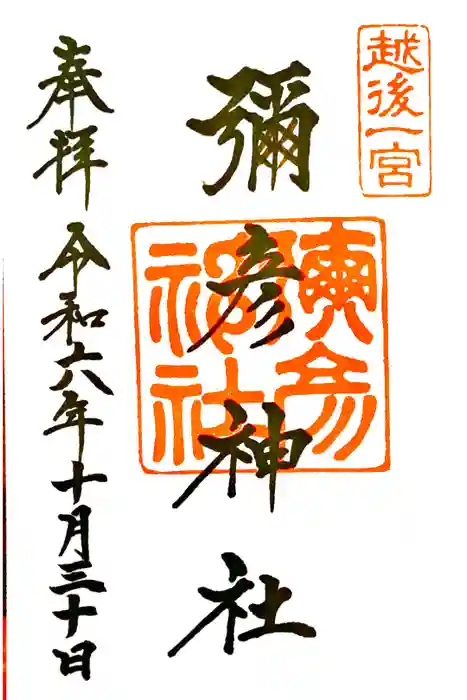 越後一宮
彌彦神社
奉拝 令和六年十月三十日